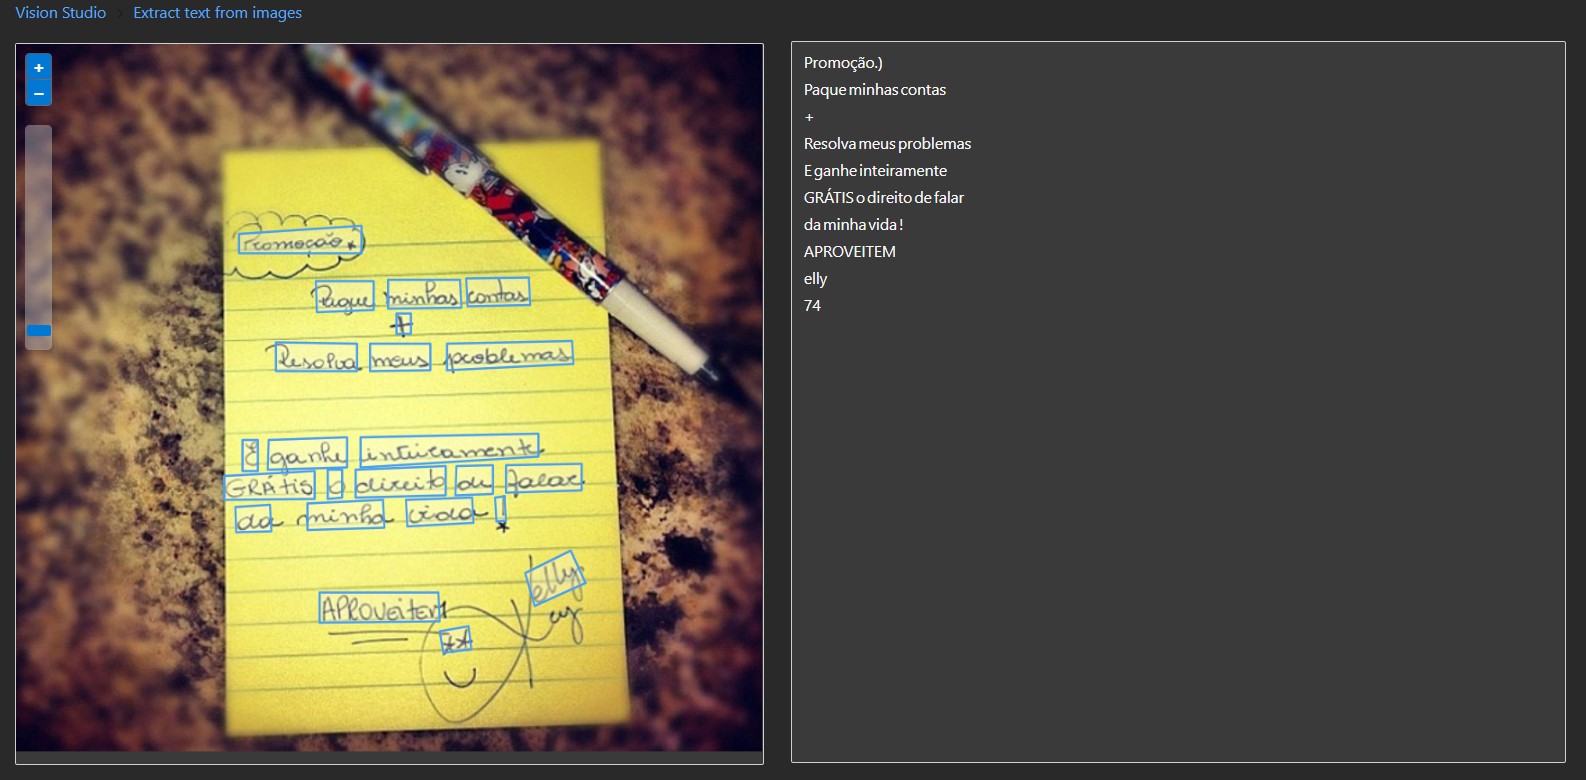 Vision Studio > Extract text from images
+
−
Promoção*
Pague minhas contas
+
Resolva meus problemas
E ganhe inteiramente
GRÁTIS o direito de falar
da minha vida!
*
APROVEITEM
**
Promoção.)
Paque minhas contas
+
Resolva meus problemas
E ganhe inteiramente
GRÁTIS o direito de falar
da minha vida !
APROVEITEM
elly
74